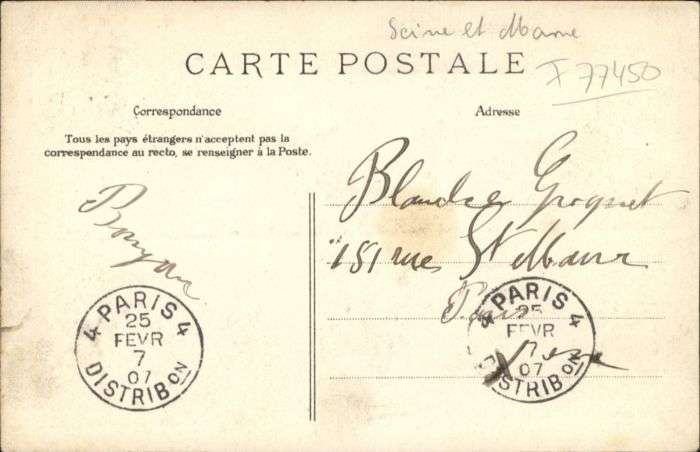 Seine et Marne
CARTE POSTALE
77450
Correspondance
Adresse
Tous les pays étrangers n'acceptent pas la
correspondance au recto, se renseigner à la Poste.
181 rue St Maur
Paris
4 PARIS 4
25
FEVR
7
07
DISTRIBON
4 PARIS 4
25
FEVR
7
07
DISTRIBON